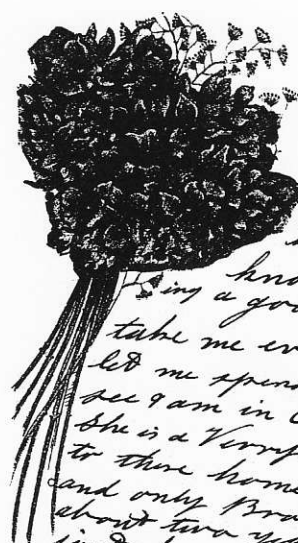 kno
ing a goo
take me ev
let me spen
see I am in
She is a Verry
to there home
and only Bro
about two ye